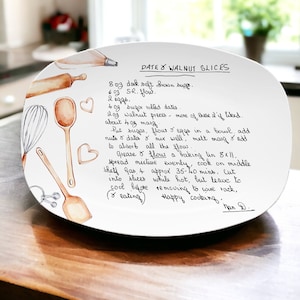 DATE & WALNUT SLICES
8 oz dark soft brown sugar.
6 oz S.R. flour.
2 eggs.
4 oz sugar rolled dates.
2 oz walnut pieces - more of these if liked.
about 4 oz marg.
Put sugar, flour & eggs in a bowl, add
nuts & dates & mix well, melt marg & add
to absorb all the flour.
Grease & flour a baking tin 8x11.
spread mixture evenly, cook on middle
shelf Gas 4 approx 35-40 mins. Cut
into slices while hot, but leave to
cool before removing to wire rack.
(& eating) Happy cooking.
Nan